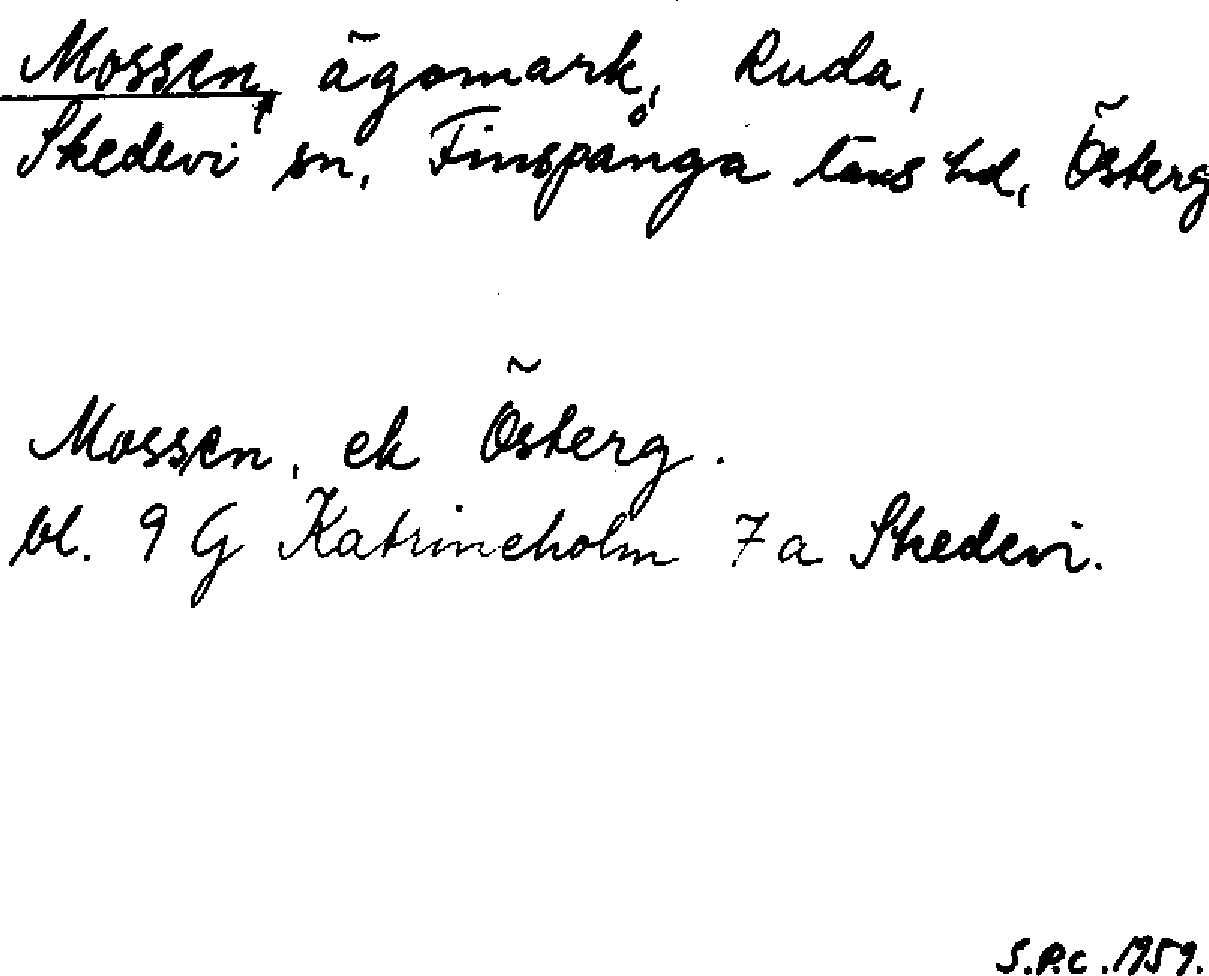 Mossen, ägomark, Ruda,
Skedevi sn, Finspånga läns hd, Österg
Mossen, ek Österg.
bl. 9 G Katrineholm 7a Skedevi.
S.P.C. 1959.